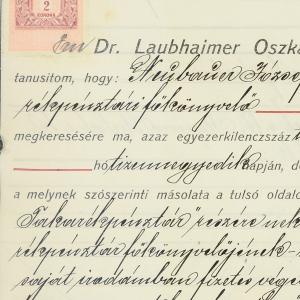 2
KORONA
Én Dr. Laubhaimer Oszká
tanusitom, hogy: Neubauer Józse
rékpénztári főkönyvelő
megkeresésére ma, azaz egyezerkilenczszáz
hó tizennegyedik napján, d
a melynek szószerinti másolata a tulsó oldalo
Takarékpénztár részére nek
rékpénztár főkönyvelőjének
saját irodámban fizetés vége